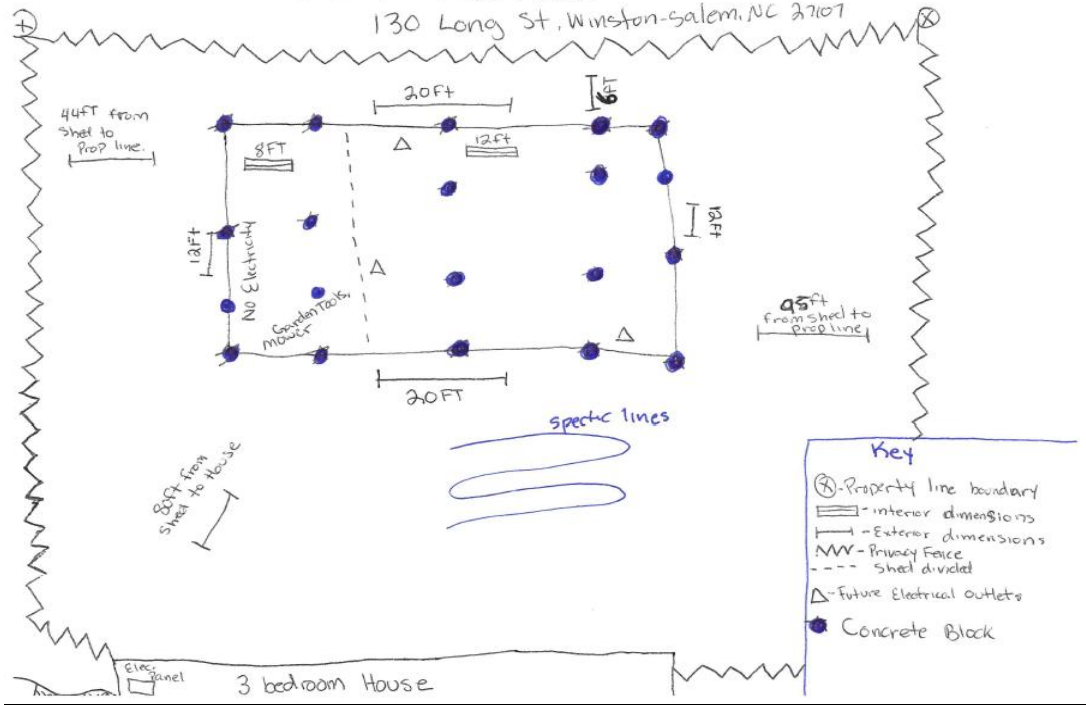 130 Long St, Winston-Salem, NC 27107
20Ft
6FT
44FT from
Shed to
Prop line.
8FT
12ft
12Ft
12Ft
NO Electricity
Garden Tools,
mower
95ft
from shed to
prop line
20FT
spectic lines
80ft from
Shed to House
Key
X-Property line boundary
-interior dimensions
-Exterior dimensions
-Privacy Fence
Shed divided
-Future Electrical Outlets
Concrete Block
Elec.
Panel
3 bedroom House